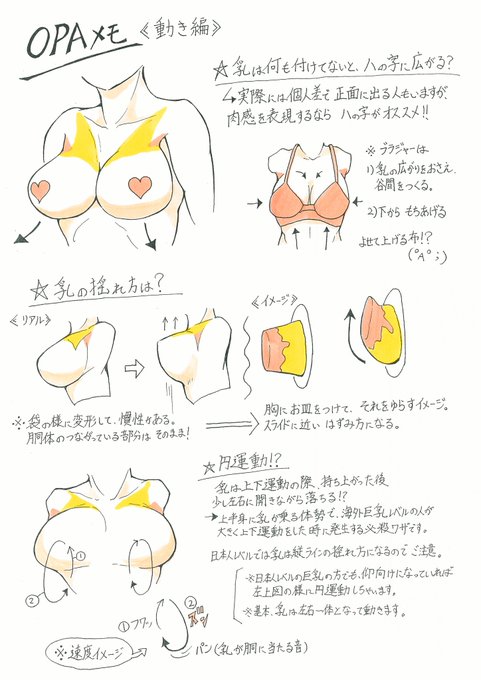 OPAメモ 《動き編》
☆乳は何も付けてないと、ハの字に広がる?
↳実際には個人差で正面に出る人もいますが、
肉感を表現するなら ハの字がオススメ!!
※ブラジャーは
1)乳の広がりをおさえ、
谷間をつくる。
2)下から もちあげる
よせて上げる布!?
(°A°;)
☆乳の揺れ方は?
《リアル》
《イメージ》
※袋の様に変形して、慣性がある。
胴体のつながっている部分は そのまま!
胸にお皿をつけて、それをゆらすイメージ。
スライドに近い はずみ方になる。
☆円運動!?
乳は上下運動の際、持ち上がった後
少し左右に開きながら落ちる!?
→上半身に乳が乗る体勢で、海外巨乳レベルの人が
大きく上下運動をした時に発生する必殺ワザです。
日本人レベルでは乳は縦ラインの揺れ方になるのでご注意。
※日本人レベルの巨乳の方でも、仰向けになっていれば
左上図の様に円運動しちゃいます。
※基本、乳は左右一体となって動きます。
①
②
①フワッ
②
ズッ
※速度イメージ
パン(乳が胴に当たる音)